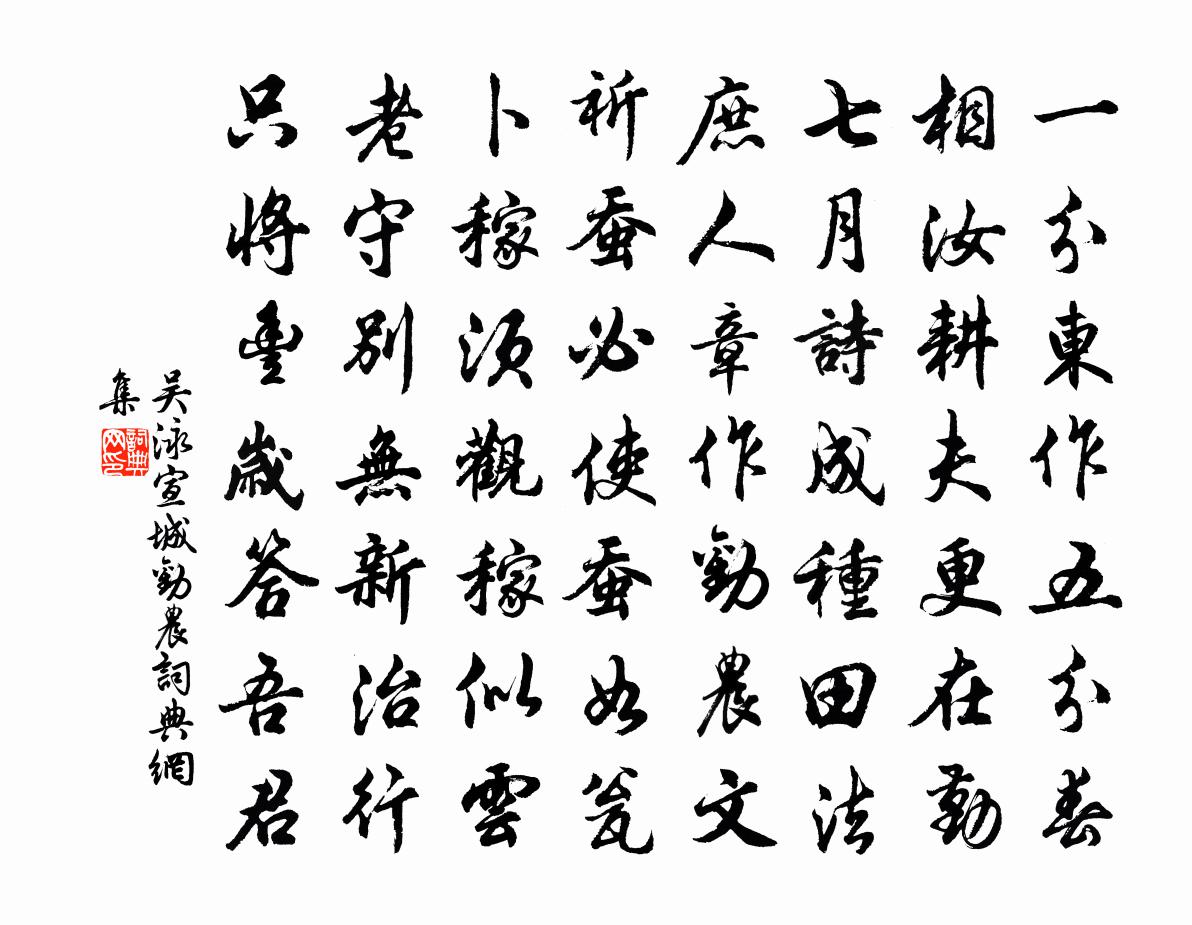 一分東作五分春
相汝耕夫更在勤
七月詩成種田法
庶人章作勸農文
祈蚕必使蚕如瓮
卜稼須觀稼似雲
老守別無新治行
只將豊歲答吾君
吴泳宣城勸農詞典網
集
詞典網印